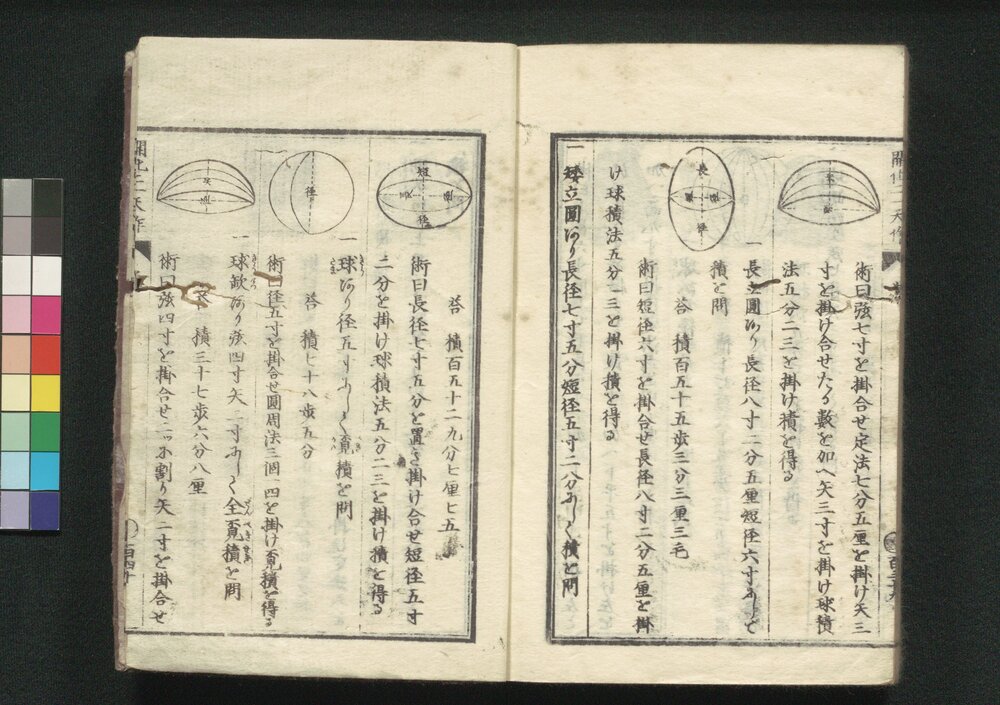 術曰弦七寸を掛合せ定法七分五厘を掛け矢三
寸を掛け合せたる数を加へ矢三寸を掛け球積
法五分二三を掛け積を得る
一
長立圓あり長径八寸二分五厘短径六寸あして
積を問
答 積百五十五歩三分三厘三毛
術曰短径六寸を掛合せ長径八寸二分五厘を掛
け球積法五分二三を掛け積を得る
一矮立圓あり長径七寸五分短径五寸二分あして積を問
矢
弦
長
径
短
径
答 積百五十二九分七厘七五
術曰長径七寸五分を置き掛け合せ短径五寸
二分を掛け球積法五分二三を掛け積を得る
一
球あり径五寸あして覓積を問
答 積七十八歩五分
術曰径五寸を掛合せ圓周法三個一四を掛け覓積を得る
一
球缺あり弦四寸矢二寸あして全覓積を問
答 積三十七歩六分八厘
術曰弦四寸を掛合せ二ッに割り矢二寸を掛合せ
短
長
径
径
矢
弦